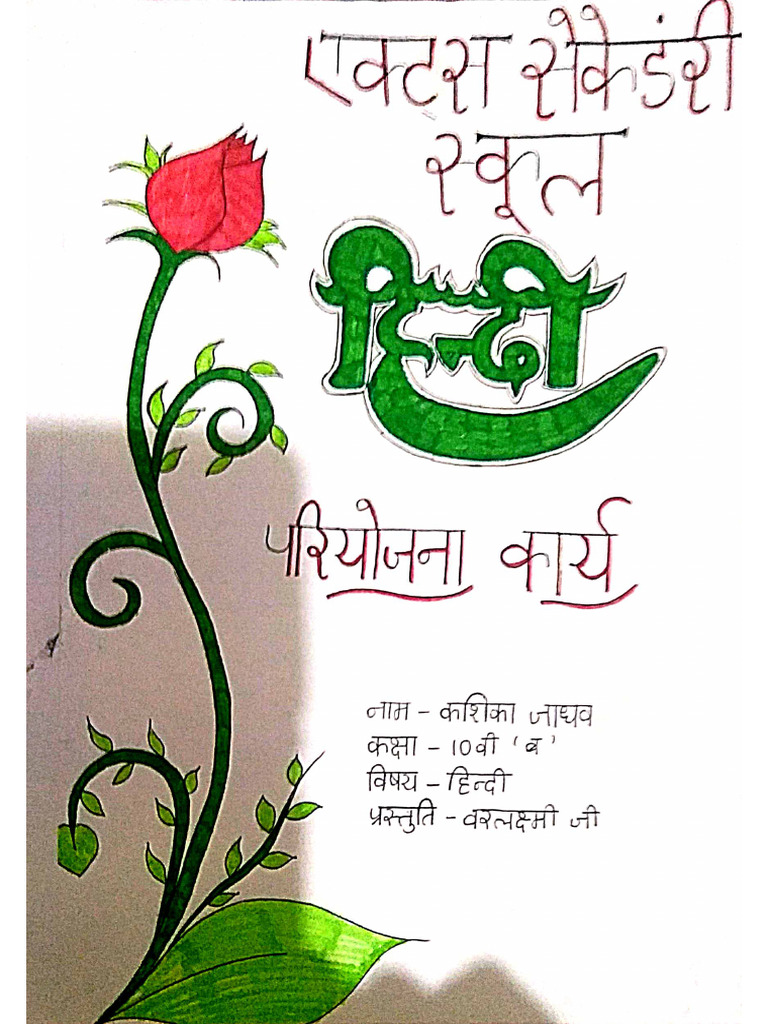 एक्ट्स सेकेडंरी
स्कूल
हिन्दी
परियोजना कार्य
नाम - कशिका जाधव
कक्षा - 10वी 'ब'
विषय - हिन्दी
प्रस्तुति - वरलक्ष्मी जी